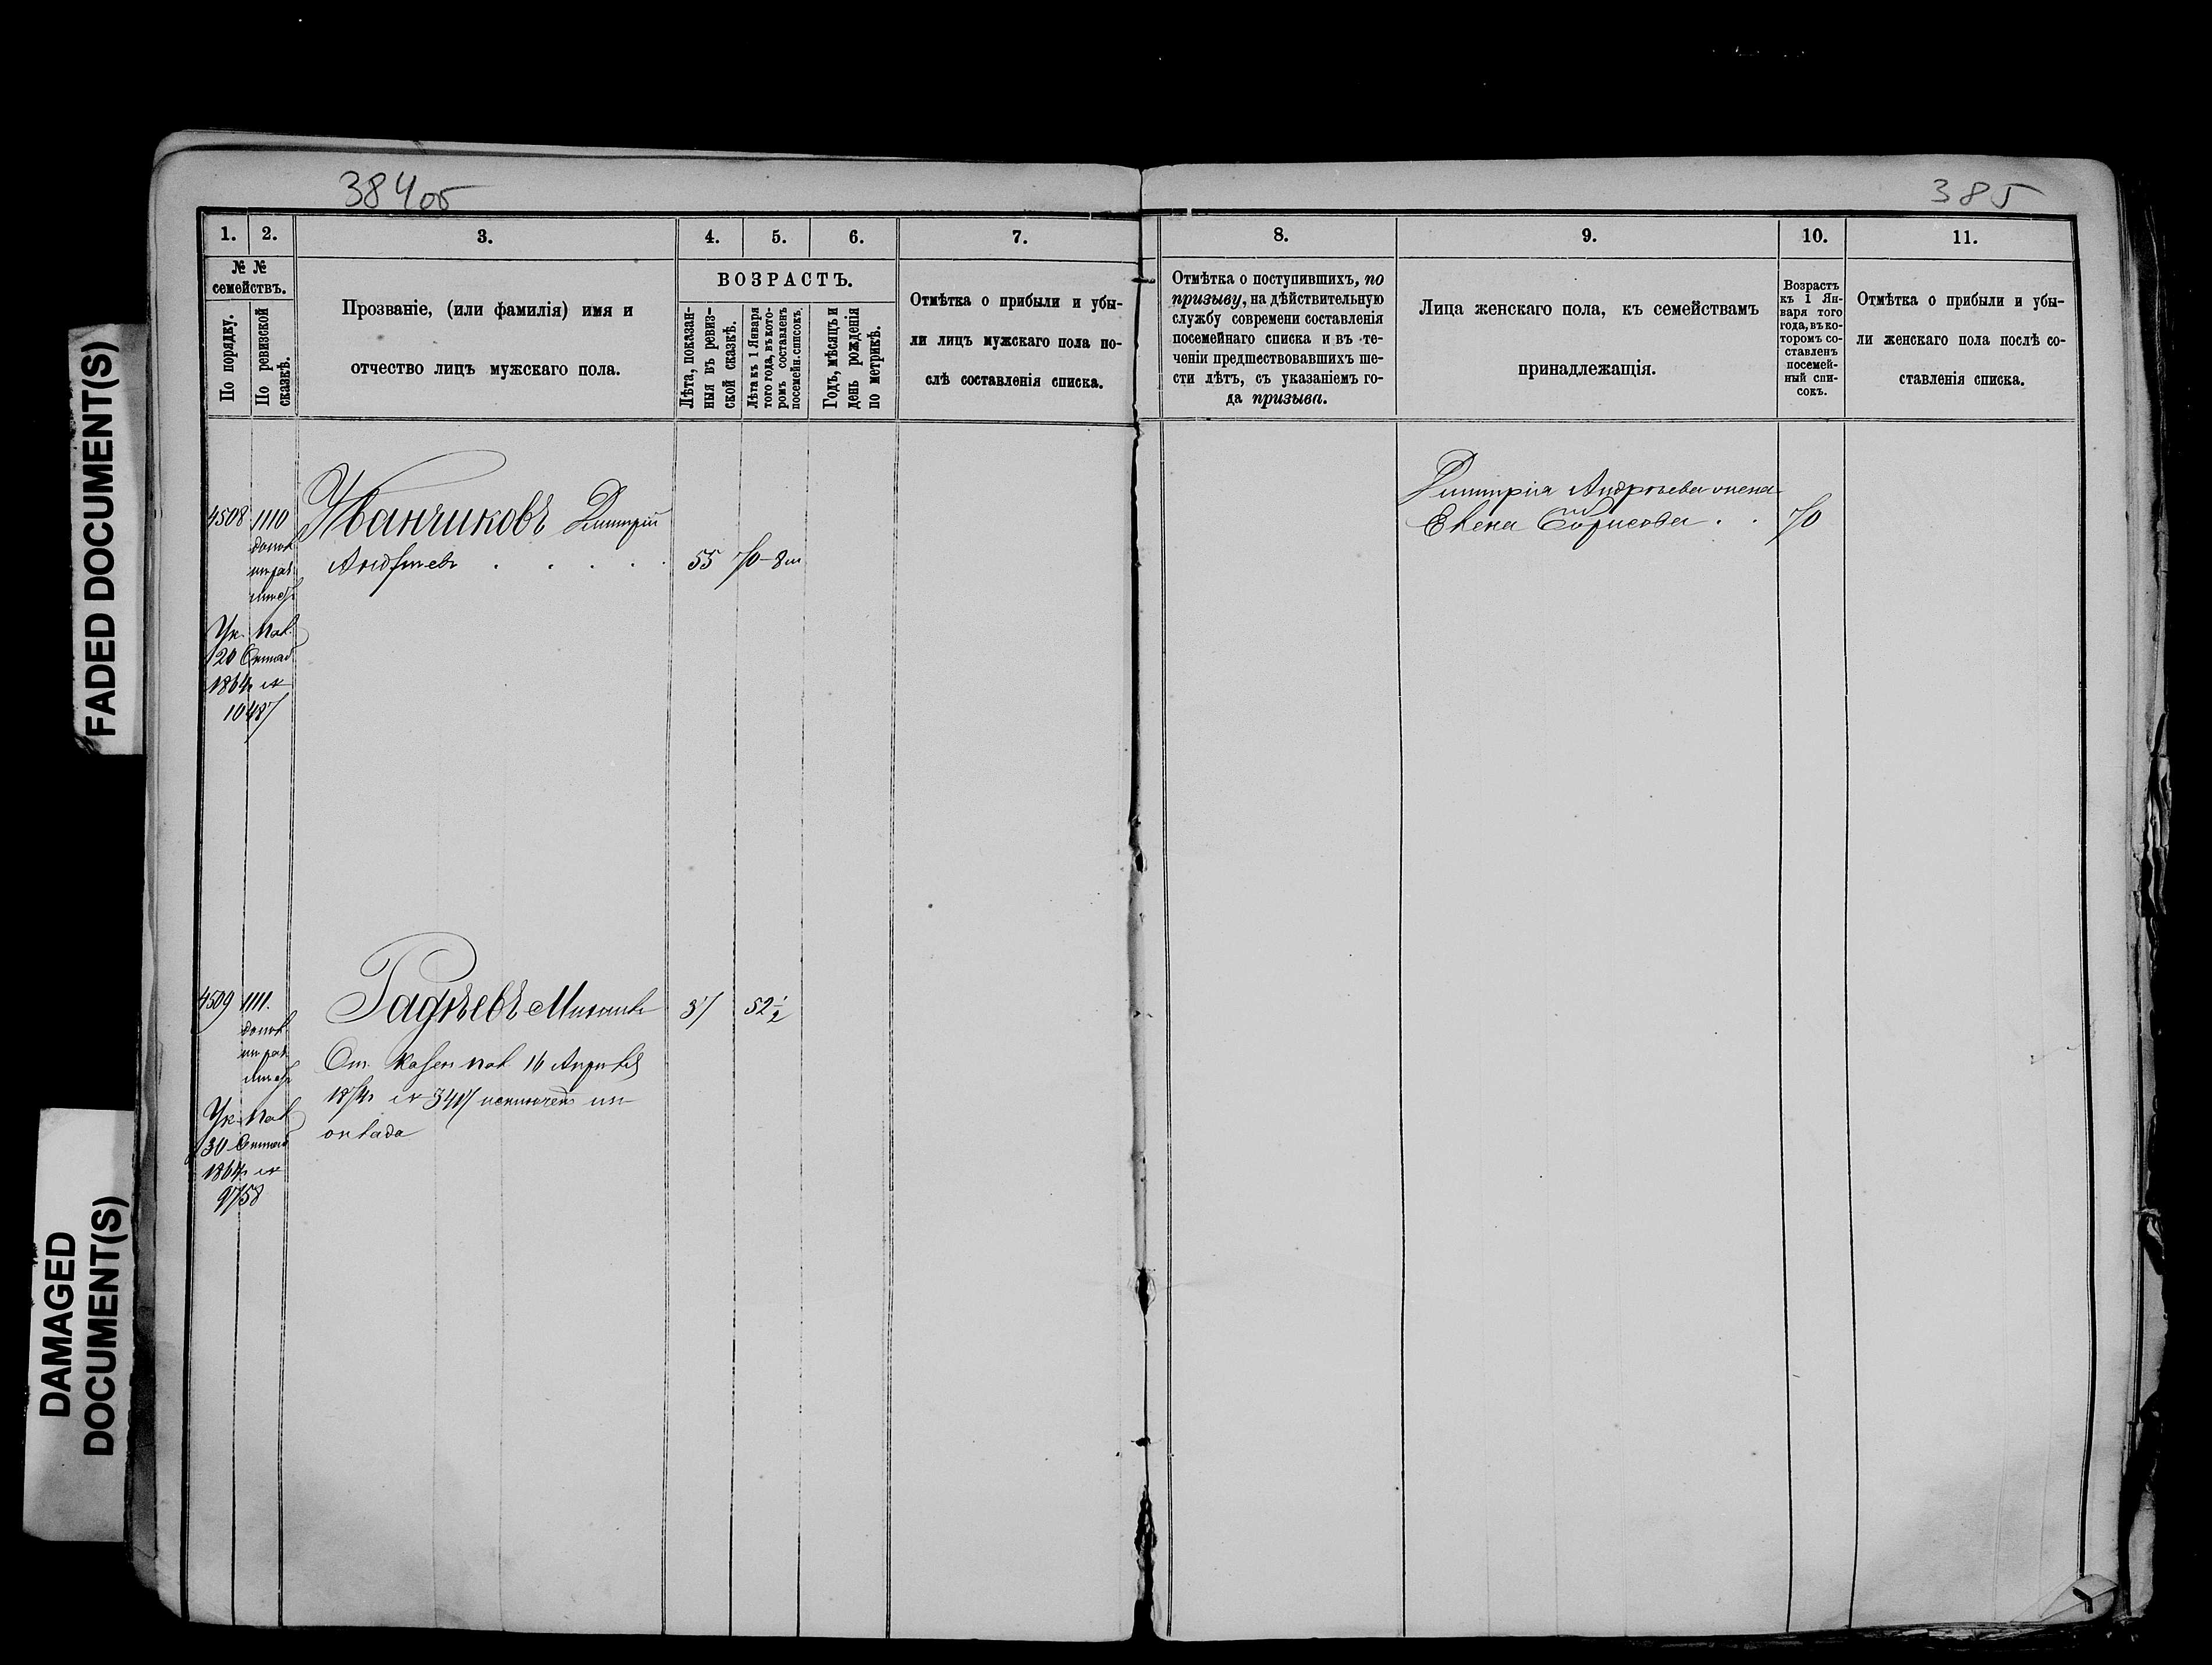 384об
385
FADED DOCUMENT(S)
DAMAGED
DOCUMENT(S)
1.
2.
3.
4.
5.
6.
7.
8.
9.
10.
11.
№ №
семействъ.
По порядку.
По ревизской
сказкѣ.
Прозваніе, (или фамилія) имя и
отчество лицъ мужскаго пола.
ВОЗРАСТЪ.
Лѣта, показан-
ныя въ ревиз-
ской сказкѣ.
Лѣта къ 1 Января
того года, въ кото-
ромъ составленъ
посемейн. списокъ.
Годъ, мѣсяцъ и
день рожденія
по метрикѣ.
Отмѣтка о прибыли и убы-
ли лицъ мужскаго пола по-
слѣ составленія списка.
Отмѣтка о поступившихъ, по
призыву, на дѣйствительную
службу современи составленія
посемейнаго списка и въ те-
ченіи предшествовавшихъ ше-
сти лѣтъ, съ указаніемъ го-
да призыва.
Лица женскаго пола, къ семействамъ
принадлежащія.
Возрастъ
къ 1 Ян-
варя того
года, въ ко-
торомъ со-
ставленъ
посемей-
ный спи-
сокъ.
Отмѣтка о прибыли и убы-
ли женскаго пола послѣ со-
ставленія списка.
4508 1110
Иванчиковъ Дмитрій
Андреевъ 55 70-8м
Дмитрія Андреева жена
Елена Борисова 70
Ук. Пал.
20
1864г №
10487
4509 1111.
Гадѣевъ 37 52½
От. Казен Пал 16 Апрѣля
1874г № 3417 исключенъ изъ
оклада
Ук. Пал
30
1864г №
9758